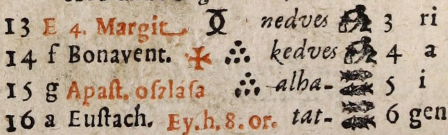 13 E 4. Margit. nedves 3 ri
14 f Bonavent. kedves 4 a
15 g Apaſt. oſzláſa alha- 5 i
16 a Euſtach. Ey. h. 8. or. tat- 6 gen